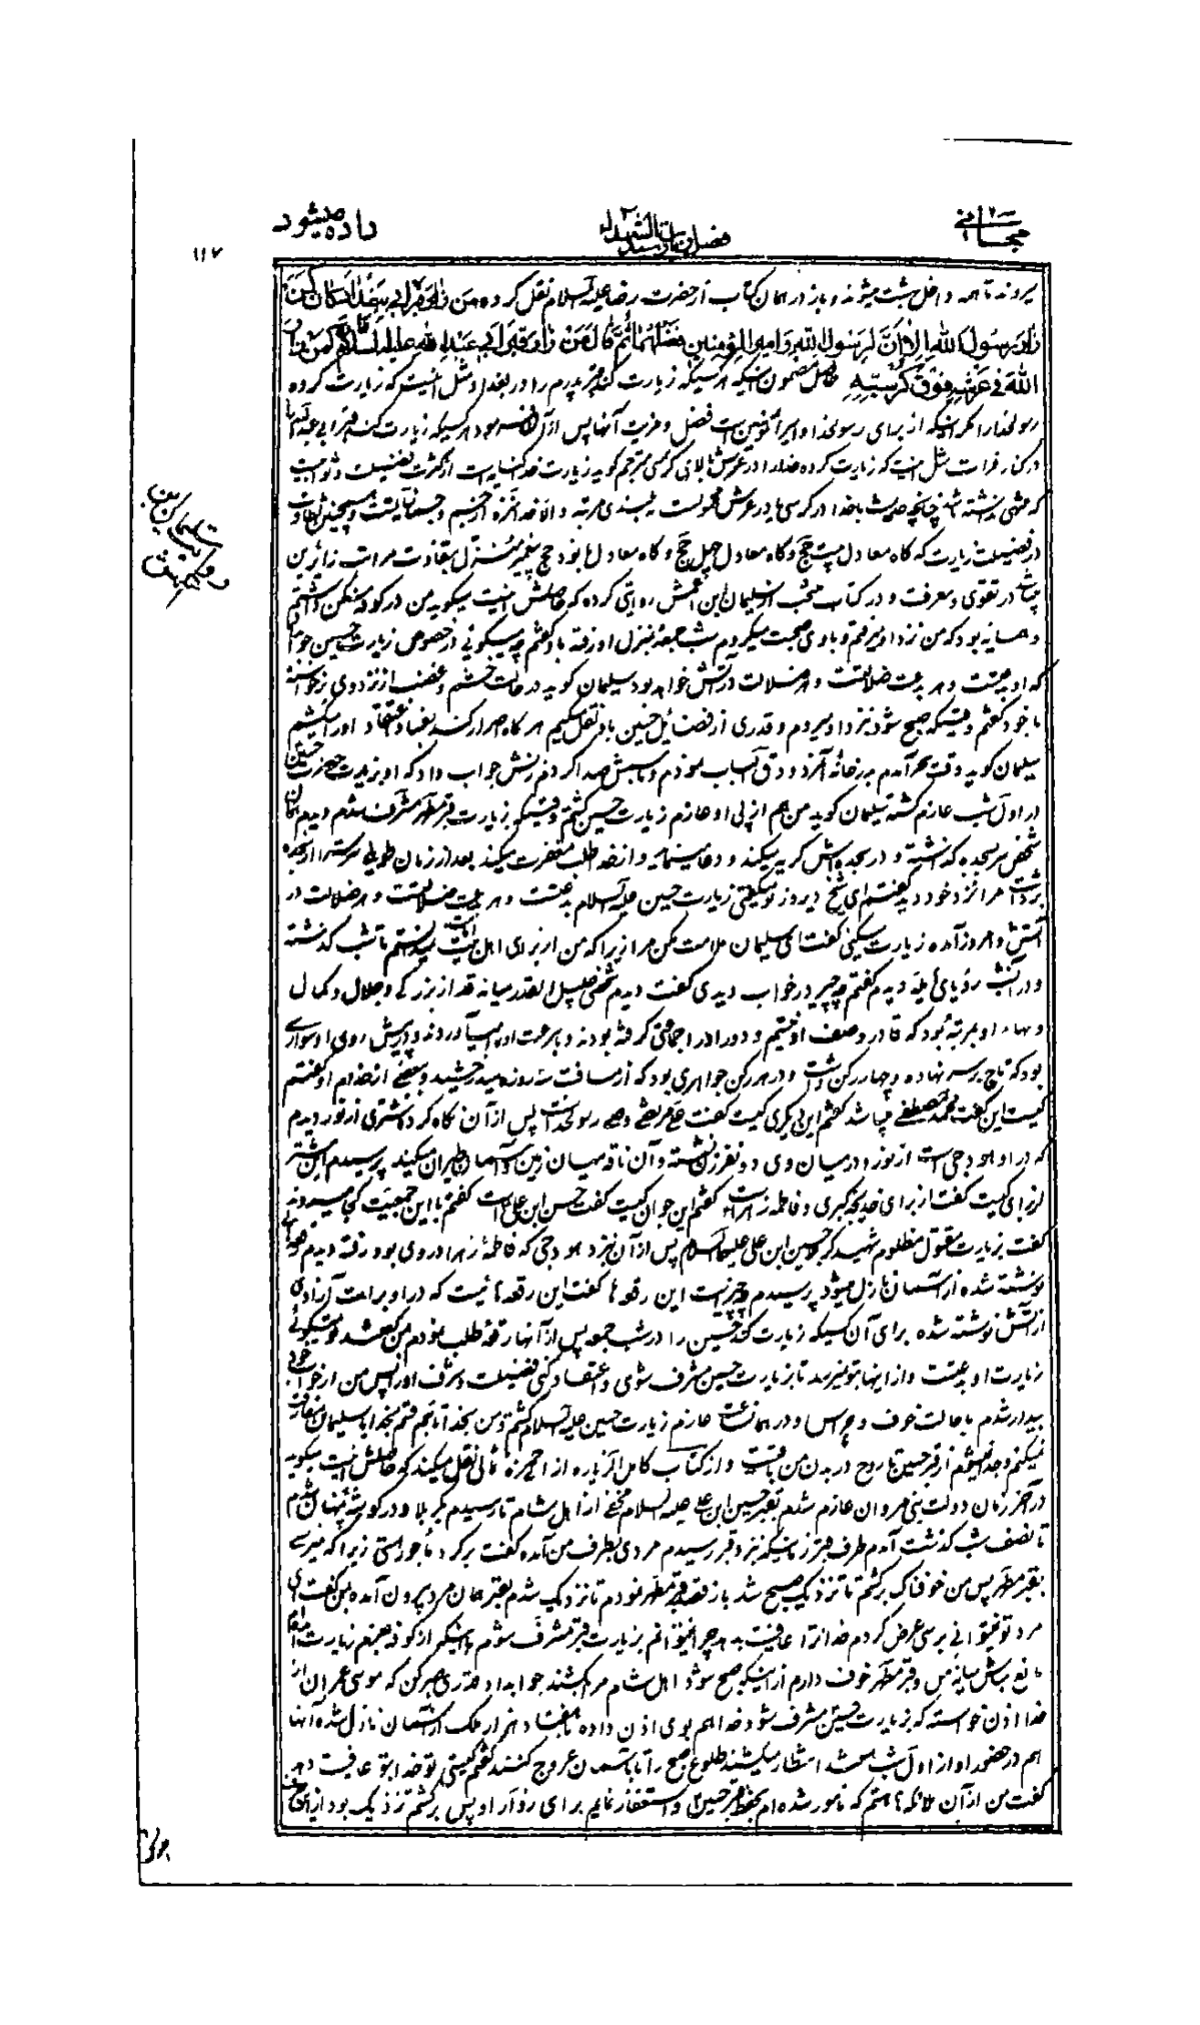 داده میشود
۱۱۷
میروند تا همه داخل بهشت میشوند و باز در همان کتاب از حضرت رضا علیه السلام نقل کرده من زار قبر ابی ببغداد کان کمن
زار رسول الله الا ان لرسول الله و امیر المؤمنین فضلهما ثم قال من زار قبر ابی عبد الله علیه السلام کمن زار
الله فی عرشه فوق کرسیه حاصل مضمون اینکه هر کسیکه زیارت کند قبر پدرم را در بغداد مثل اینست که زیارت کرده
رسولخدا را مگر اینکه از برای رسولخدا و امیر المؤمنین است فضل و مزیت آنها پس از آن فرمود هر کسیکه زیارت کند قبر ابی عبد الله را
در کنار فرات مثل اینست که زیارت کرده خدا را در عرش بالای کرسی مترجم گوید زیارت خدا کنایه است از کثرت فضیلت و ثواب
در فضیلت زیارت که گاه معادل بیست حج و گاه معادل چهل حج و گاه معادل با نود حج پیغمبر منزل بتفاوت مراتب زائرین
در تقوی و معرفت و در کتاب منتخب از سلیمان ابن اعمش روایتی کرده که حاصلش اینست میگوید من در کوفه مسکن داشتم
و همسایه بود که من نزد او میرفتم و با وی صحبت میکردم شب جمعه بمنزل او رفته باو گفتم چه میگوئی در خصوص زیارت حسین جواب داد
که او بدعتست و هر بدعت ضلالتست و هر ضلالت در آتش خواهد بود سلیمان گوید در حالت خشم و غضب از نزد وی برخواسته
با خود گفتم وقتیکه صبح شود نزد او میروم و قدری از فضائل حسین باو نقل میکنم هر گاه اصرار کند بفساد اعتقاد او را میکشم
سلیمان گوید وقت سحر آمدم بدر خانه آنمرد و دق الباب نمودم و باسمش صدا کردم زنش جواب داد که او بزیارت حضرت حسین
در اول شب عازم گشته سلیمان گوید من هم از پی او عازم زیارت حسین گشتم وقتیکه بزیارت قبر مطهر مشرف شدم دیدم همان
شخص سر بسجده گذاشته و در سجده اش گریه میکند و دعا مینماید و از خدا طلب مغفرت میکند بعد از زمان طویلی سرش را از سجده
برداشت مرا نزد خود دید گفتم ای شیخ دیروز تو میگفتی زیارت حسین علیه السلام بدعتست و هر بدعت ضلالتست و هر ضلالت در
آتش و امروز آمده زیارت میکنی گفت ای سلیمان ملامت مکن مرا زیرا که من از برای اهل بیت امامت نمیدانستم تا شب گذشته
و در آنشب رؤیای دیدم گفتم چه چیز در خواب دیدی گفت دیدم شخصی جلیل القدر میانه قد از بزرگی و جلال و کمال
و بهاء او بمرتبه بود که قادر وصف او نیستم و دور او را جماعتی گرفته بودند و بسرعت او را میآوردند و در پیش روی او سواری
بود که تاج بر سر نهاده و چهار رکن داشت و در هر رکن جواهری بود که از مسافت سه روزه میدرخشید و ببعضی از خدام او گفتم
کیست این گفت محمد مصطفی میباشد گفتم این دیگری کیست گفت علی مرتضی وصی رسولخداست پس از آن نگاه کردم شتری از نور دیدم
که در او هودجی است از نور و در میان وی دو نفر زن نشسته و آن ناقه میان زمین و آسمان طیران میکند پرسیدم این شتر
از برای کیست گفت از برای خدیجه کبری و فاطمه زهراست گفتم این جوان کیست گفت حسن ابن علی است گفتم با این جمعیت کجا میروند
گفت بزیارت مقتول مظلوم شهید کربلا حسین ابن علی علیه السلام پس از آن نزد هودجی که فاطمه زهرا در وی بود رفته دیدم
نوشته شده از آسمان نازل میشود پرسیدم چه چیز است این رقعه ها گفت این رقعه هائیست که در او برات آزادی
از آتش نوشته شده برای آن کسیکه زیارت کند حسین را در شب جمعه پس از آنها رقعه طلب نمودم بمن گفت تو میگوئی
زیارت او بدعتست و از اینها بتو نمیرسد تا بزیارت حسین مشرف شوی و اعتقاد کنی فضیلت و شرف او را پس من از خواب خود
بیدار شدم با حالت خوف و هراس و در همانساعت عازم زیارت حسین علیه السلام گشتم و من بخدا تائب گشتم بخدا یا سلیمان مفارقت
نمیکنم و جدا نمیشوم از قبر حسین تا روح در بدن من باقیست و از کتاب کامل الزیاره از ابو حمزه ثمالی نقل میکند که حاصلش اینست میگوید
در آخر زمان دولت بنی مروان عازم شدم بقبر حسین ابن علی علیه السلام مخفی از اهل شام تا رسیدم بکربلا و در گوشه پنهان شدم
تا نصف شب گذشت آمدم طرف قبر زمانیکه نزد قبر رسیدم مردی بطرف من آمده گفت برگرد مأجور هستی زیرا که نمیرسی
بقبر مطهر پس من خوفناک برگشتم تا نزدیک صبح شد باز قصد قبر مطهر نمودم تا نزدیک شدم بقبر همان مرد بیرون آمده بمن گفت ای
مرد تو نمیتوانی برسی عرض کردم خدا ترا عافیت بدهد چرا نمیتوانم بزیارت قبر مشرف شوم با اینکه از کوفه بعزم زیارت آمدم
مانع مباش میانه من و قبر مطهر خوف دارم از اینکه صبح شود اهل شام مرا بکشند جواب داد قدری صبر کن که موسی عمران از
خدا اذن خواسته که بزیارت حسین مشرف شود خدا هم بوی اذن داده با هفتاد هزار ملک از آسمان نازل شده آنها
هم در حضور او از اول شب هستند انتظار میکشند طلوع صبح را تا بآسمان عروج کنند گفتم کیستی تو خدا بتو عافیت دهد
گفت من از آن ملائکه هستم که مأمور شده ام بحفظ قبر حسین و استغفار نمایم برای زوار او پس برگشتم نزدیک بود از این